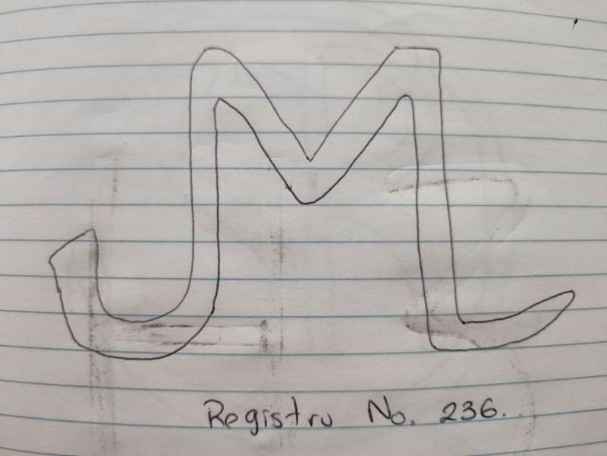 JML
Registro No. 236.